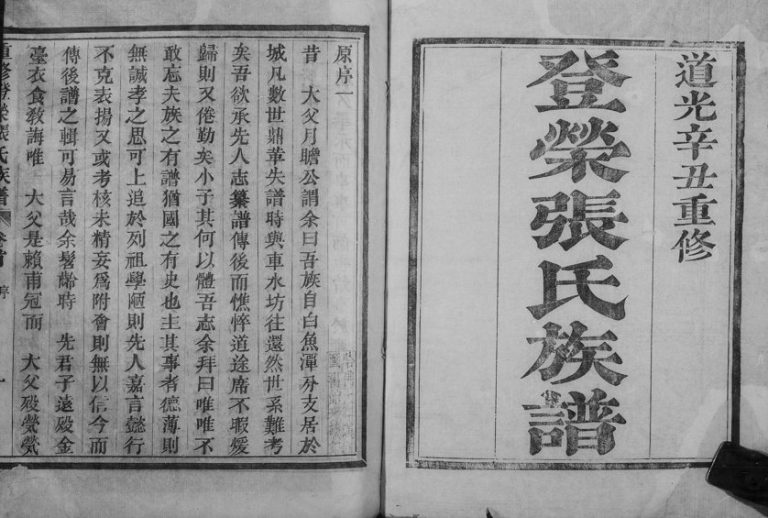 道光辛丑重修
登榮張氏族譜
原序一
昔　大父月瞻公謂余曰吾族自白魚潭分支居於
城凡數世鼎革失譜時與車水坊往還然世系難考
矣吾欲承先人志纂譜傳後而憔悴道途席不暇煖
歸則又倦勤矣小子其何以體吾志余拜曰唯唯不
敢忘夫族之有譜猶國之有史也主其事者德薄則
無誠孝之思可上追於列祖學陋則先人嘉言懿行
不克表揚又或考核未精妄爲附會則無以信今而
傳後譜之輯可易言哉余髫齡時　先君子遠歿金
臺衣食敎誨唯　大父是賴甫冠而　大父歿煢煢
重修登榮張氏族譜　卷首　序　一